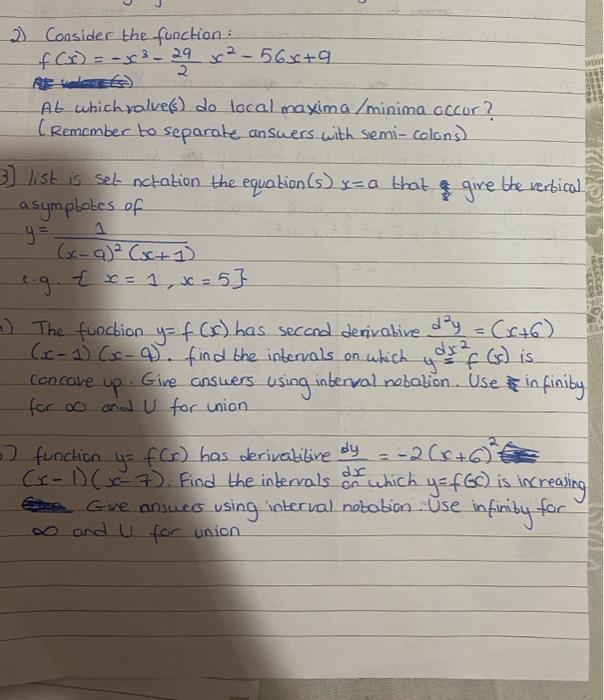 2) Consider the function:
f(x) = -x³ - 29/2 x² - 56x + 9
At which value(s) do local maxima/minima occur?
(Remember to separate answers with semi-colons)
3] list is set notation the equation(s) x=a that give the vertical
asymptotes of
y = 1/((x-9)²(x+1))
e.g. { x = 1, x = 5}
) The function y= f(x) has second derivative d²y/dx² = (x+6)
(x-1)(x-9). find the intervals on which y = f(x) is
concave up. Give answers using interval notation. Use infinity
for ∞ and U for union
) function y= f(x) has derivatitive dy/dx = -2(x+6)²
(x-1)(x-7). Find the intervals on which y=f(x) is increasing
Give answers using interval notation. Use infinity for
∞ and U for union